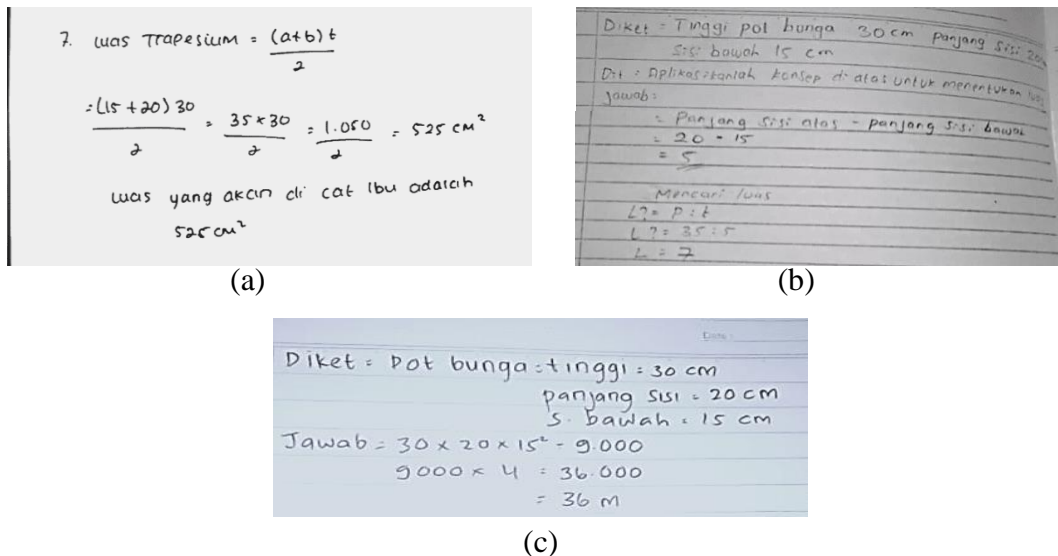 7. Luas Trapesium = (a+b) t
2
= (15 + 20) 30 = 35 × 30 = 1.050 = 525 cm²
2 2 2
Luas yang akan di cat Ibu adalah
525 cm²
(a)
Diket = Tinggi pot bunga 30 cm panjang sisi 20
sisi bawah 15 cm
Dit : Aplikasikanlah konsep di atas untuk menentukan luas
Jawab:
= Panjang sisi atas - panjang sisi bawah
= 20 - 15
= 5
Mencari luas
L? = P : t
L? = 35 : 5
L = 7
(b)
Date :
Diket = Pot bunga = tinggi = 30 cm
panjang sisi = 20 cm
s. bawah = 15 cm
Jawab = 30 × 20 × 15² - 9.000
9000 × 4 = 36.000
= 36 m
(c)